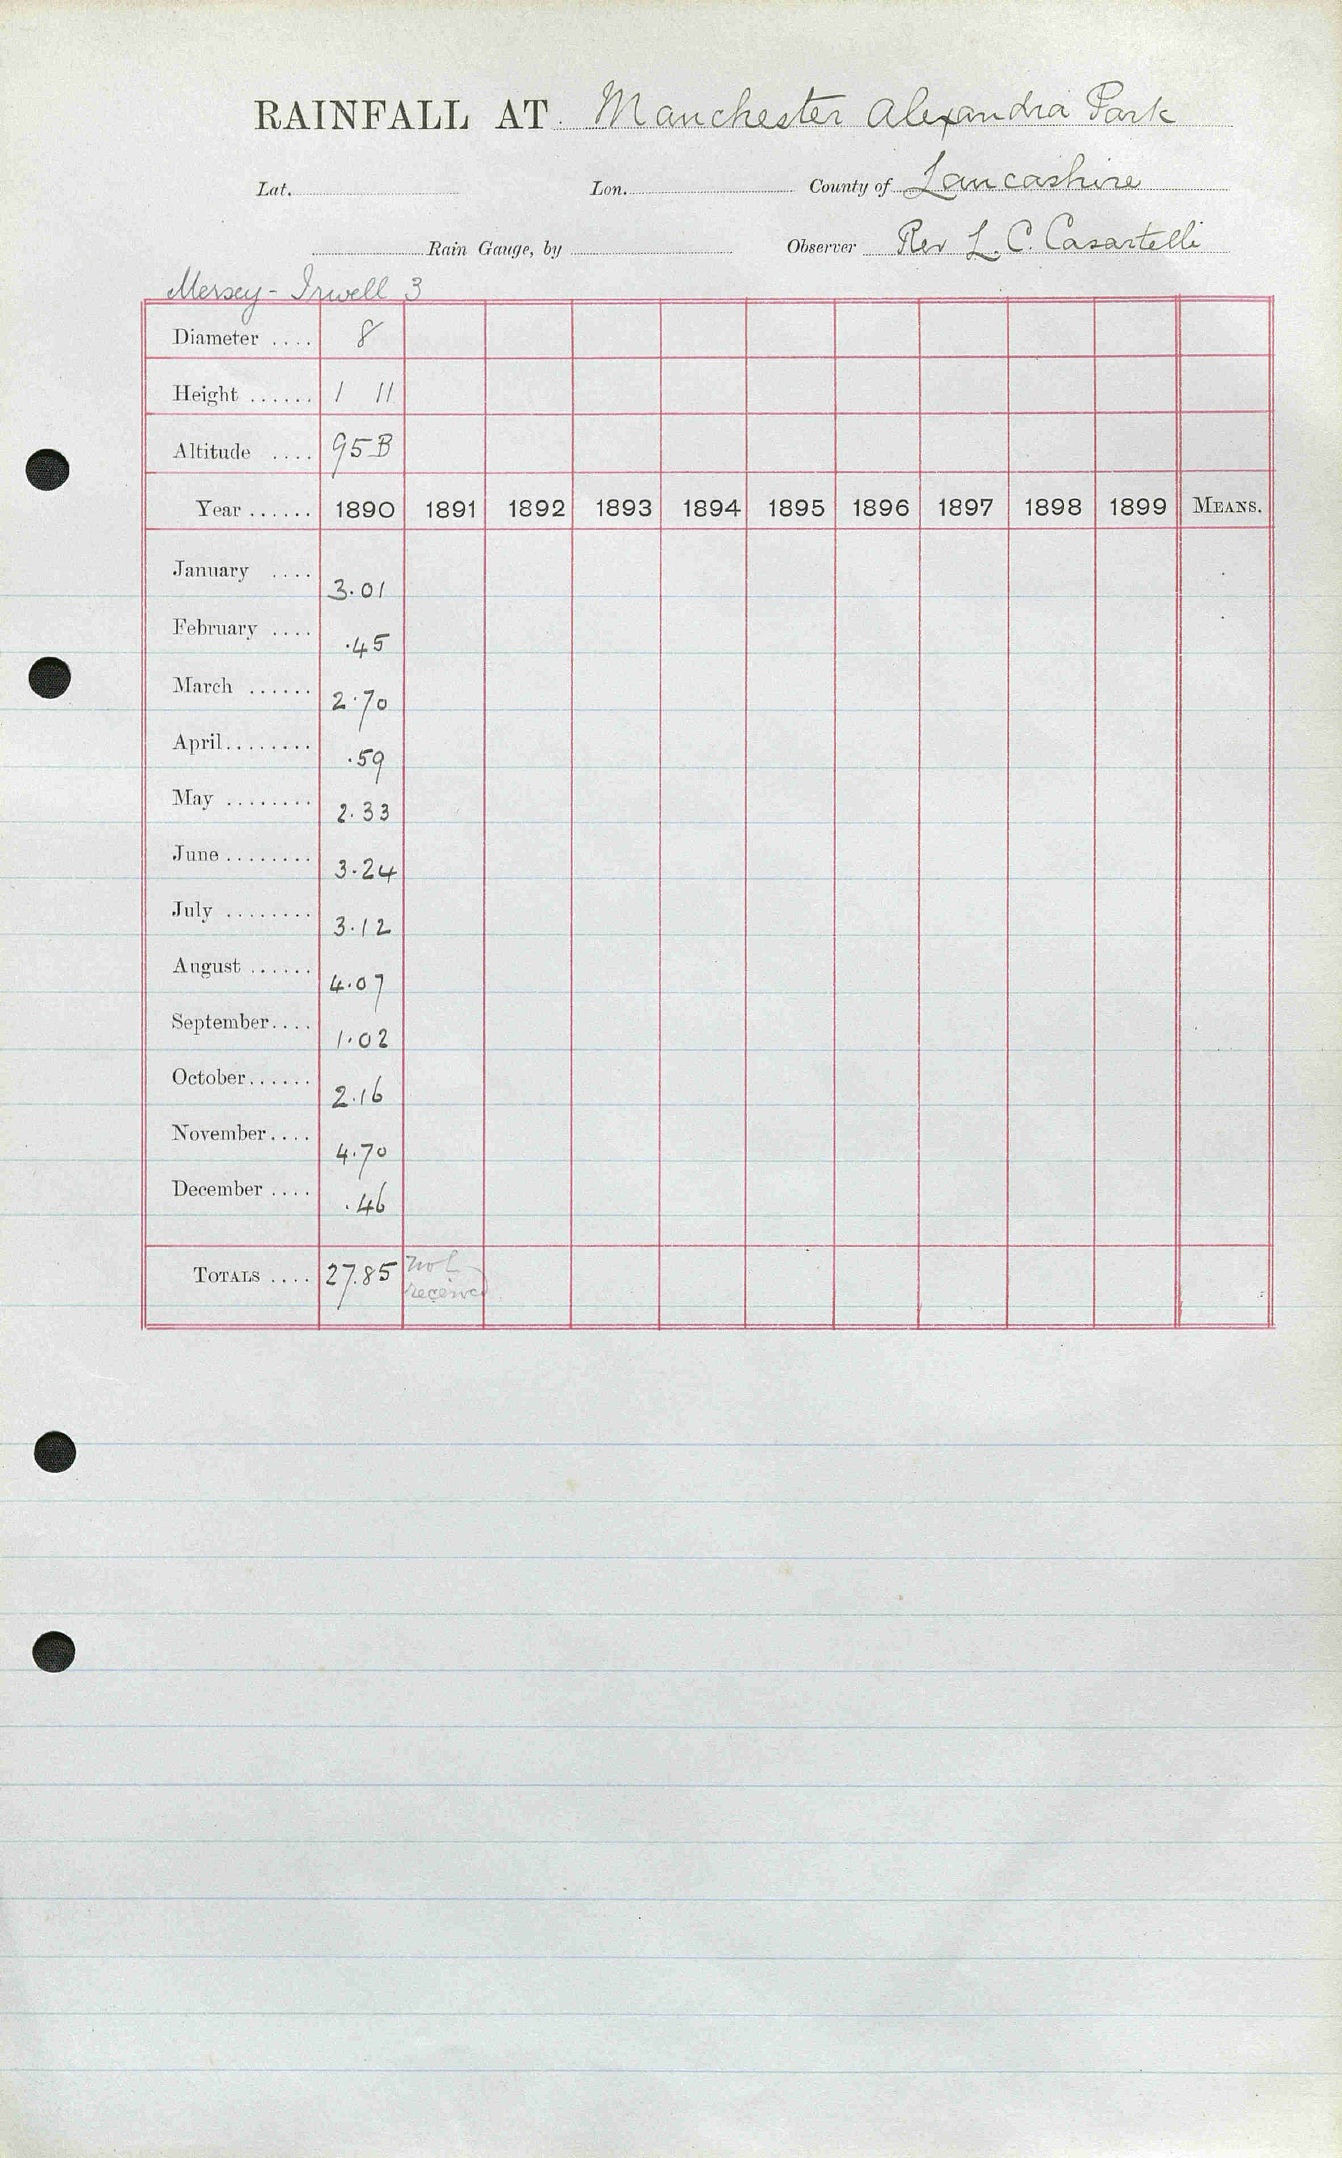 RAINFALL AT Manchester Alexandra Park
Lat. Lon. County of Lancashire
Rain Gauge, by Observer Rev L. C. Casartelli
Mersey-Irwell 3
Diameter .... 8
Height ...... 1 11
Altitude .... 95 B
Year ...... 1890 1891 1892 1893 1894 1895 1896 1897 1898 1899 MEANS.
January .... 3.01
February .... .45
March ...... 2.70
April........ .59
May ........ 2.33
June........ 3.24
July ........ 3.12
August ...... 4.07
September.... 1.02
October...... 2.16
November.... 4.70
December .... .46
TOTALS .... 27.85 not
received